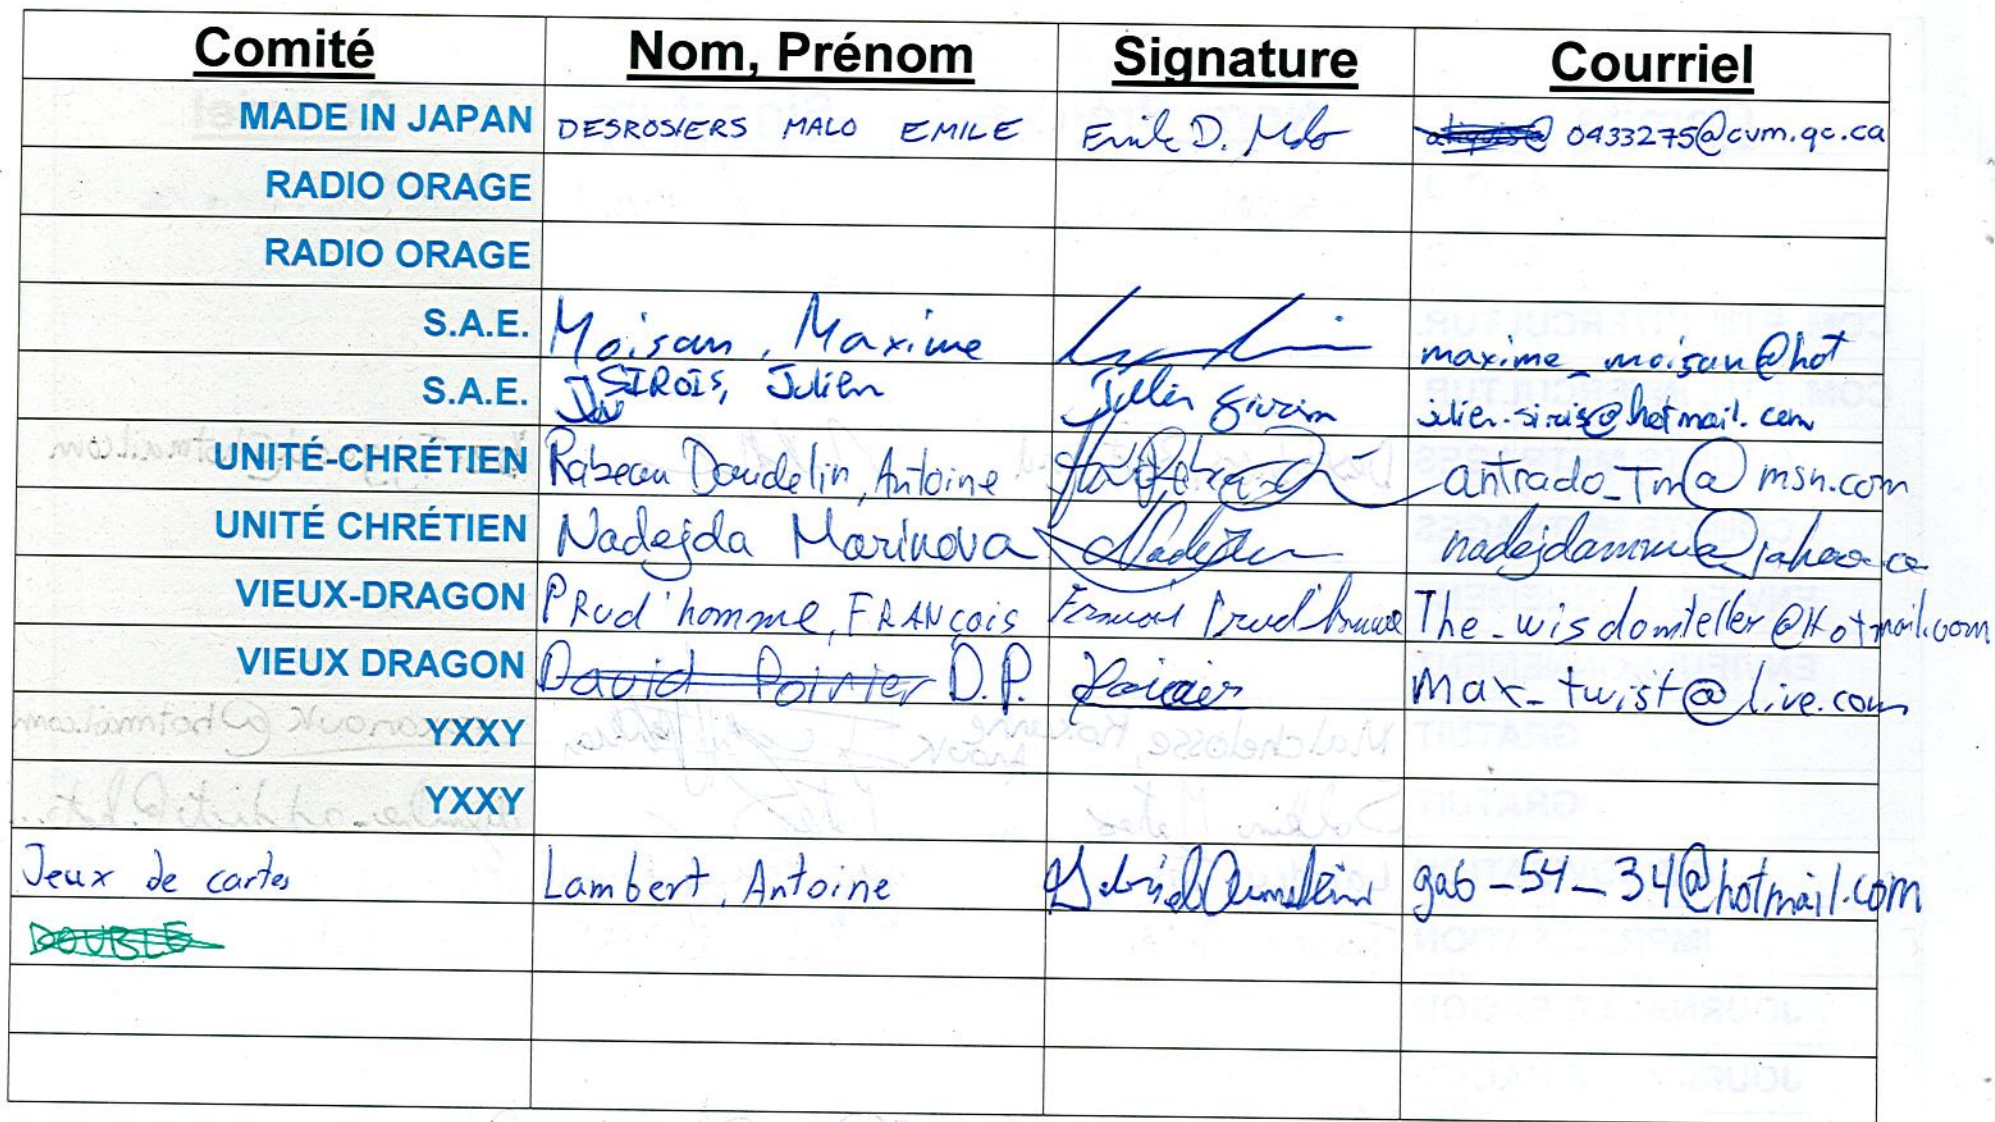 Comité Nom, Prénom Signature Courriel
MADE IN JAPAN DESROSIERS MALO EMILE Emile D. Malo 0433275@cvm.qc.ca
RADIO ORAGE
RADIO ORAGE
S.A.E. Moisan, Maxime maxime_moisan@hot
S.A.E. SIROIS, Julien Julien julien.sirois@hotmail.com
UNITÉ-CHRÉTIEN Rabeau Daudelin, Antoine antrado_Tm@msn.com
UNITÉ CHRÉTIEN Nadejda Marinova Nadejda
VIEUX-DRAGON PRud'homme, FRANçois François Prud'homme The_wisdomteller@Hotmail.com
VIEUX DRAGON David Poirier D.P. Poirier Max_twist@live.com
YXXY
YXXY
Jeux de cartes Lambert, Antoine gab-54_34@hotmail.com
DOUBLE